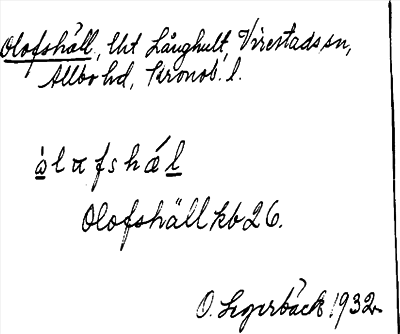 Olofshäll, lht Långhult, Virestads sn,
Allbo hd, Kronob. l.
àlɑfshǽl
Olofshäll kb 26.
O. 1932